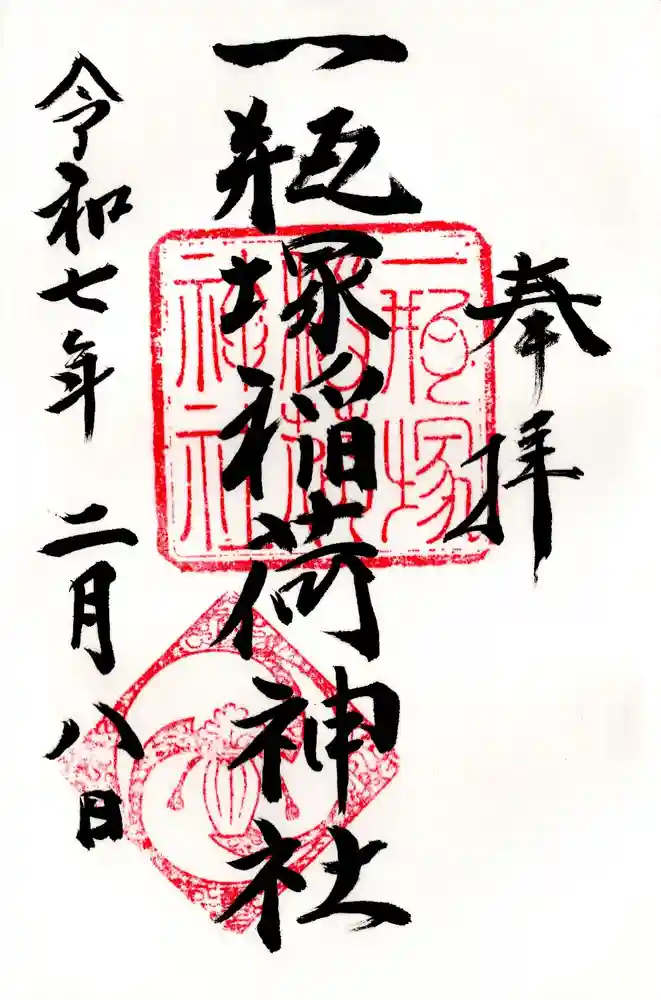 奉拝
一瓶塚稲荷神社
一瓶塚
稲荷
神社
令和七年 二月八日